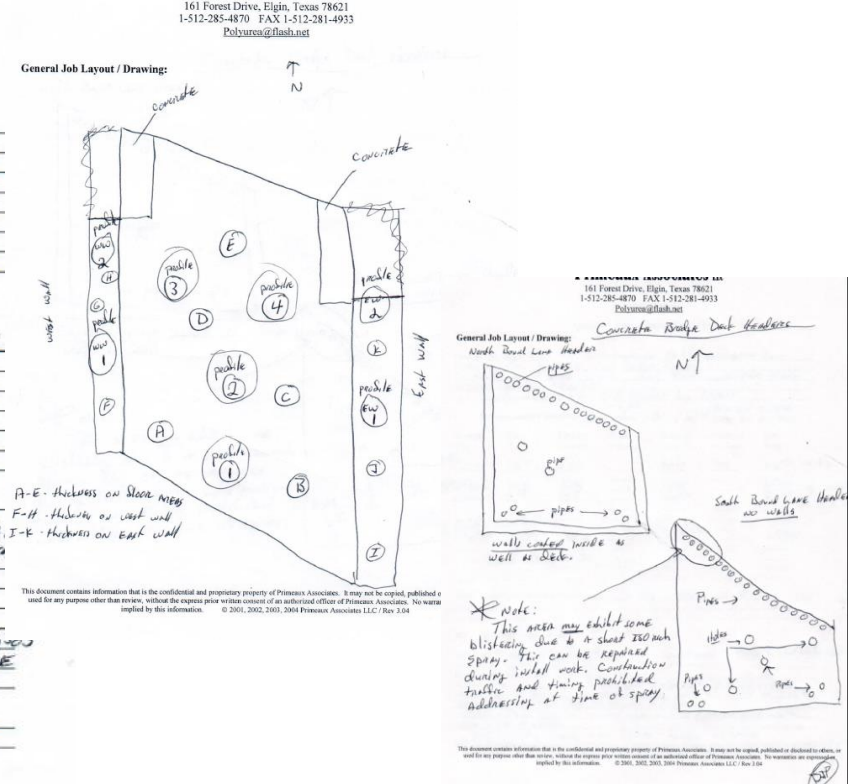 161 Forest Drive, Elgin, Texas 78621
1-512-285-4870 FAX 1-512-281-4933
Polyurea@flash.net
General Job Layout / Drawing:
N
CONCRETE
CONCRETE
profile
WW
2
H
G
profile
WW
1
F
West Wall
E
profile
3
profile
4
D
profile
2
C
A
profile
1
B
profile
EW
2
K
profile
EW
1
J
I
East Wall
A-E - thickness on floor areas
F-H - thickness on west wall
I-K - thickness on East wall
This document contains information that is the confidential and proprietary property of Primeaux Associates. It may not be copied, published o
used for any purpose other than review, without the express prior written consent of an authorized officer of Primeaux Associates. No warran
implied by this information. © 2001, 2002, 2003, 2004 Primeaux Associates LLC / Rev 3.04
E
161 Forest Drive, Elgin, Texas 78621
1-512-285-4870 FAX 1-512-281-4933
Polyurea@flash.net
General Job Layout / Drawing:
Concrete Bridge Deck Headers
North Bound Lane Header
N
pipes
pipe
pipes
walls coated inside as
well as deck.
South Bound Lane Header
no walls
Pipes
Holes
Pipes
pipes
Note:
This area may exhibit some
blistering due to a short ISO rich
spray. This can be repaired
during install work. Construction
traffic and timing prohibited
addressing at time of spray.
This document contains information that is the confidential and proprietary property of Primeaux Associates. It may not be copied, published or disclosed to others, or
used for any purpose other than review, without the express prior written consent of an authorized officer of Primeaux Associates. No warranties are expression
implied by this information. © 2001, 2002, 2003, 2004 Primeaux Associates LLC / Rev 3.04